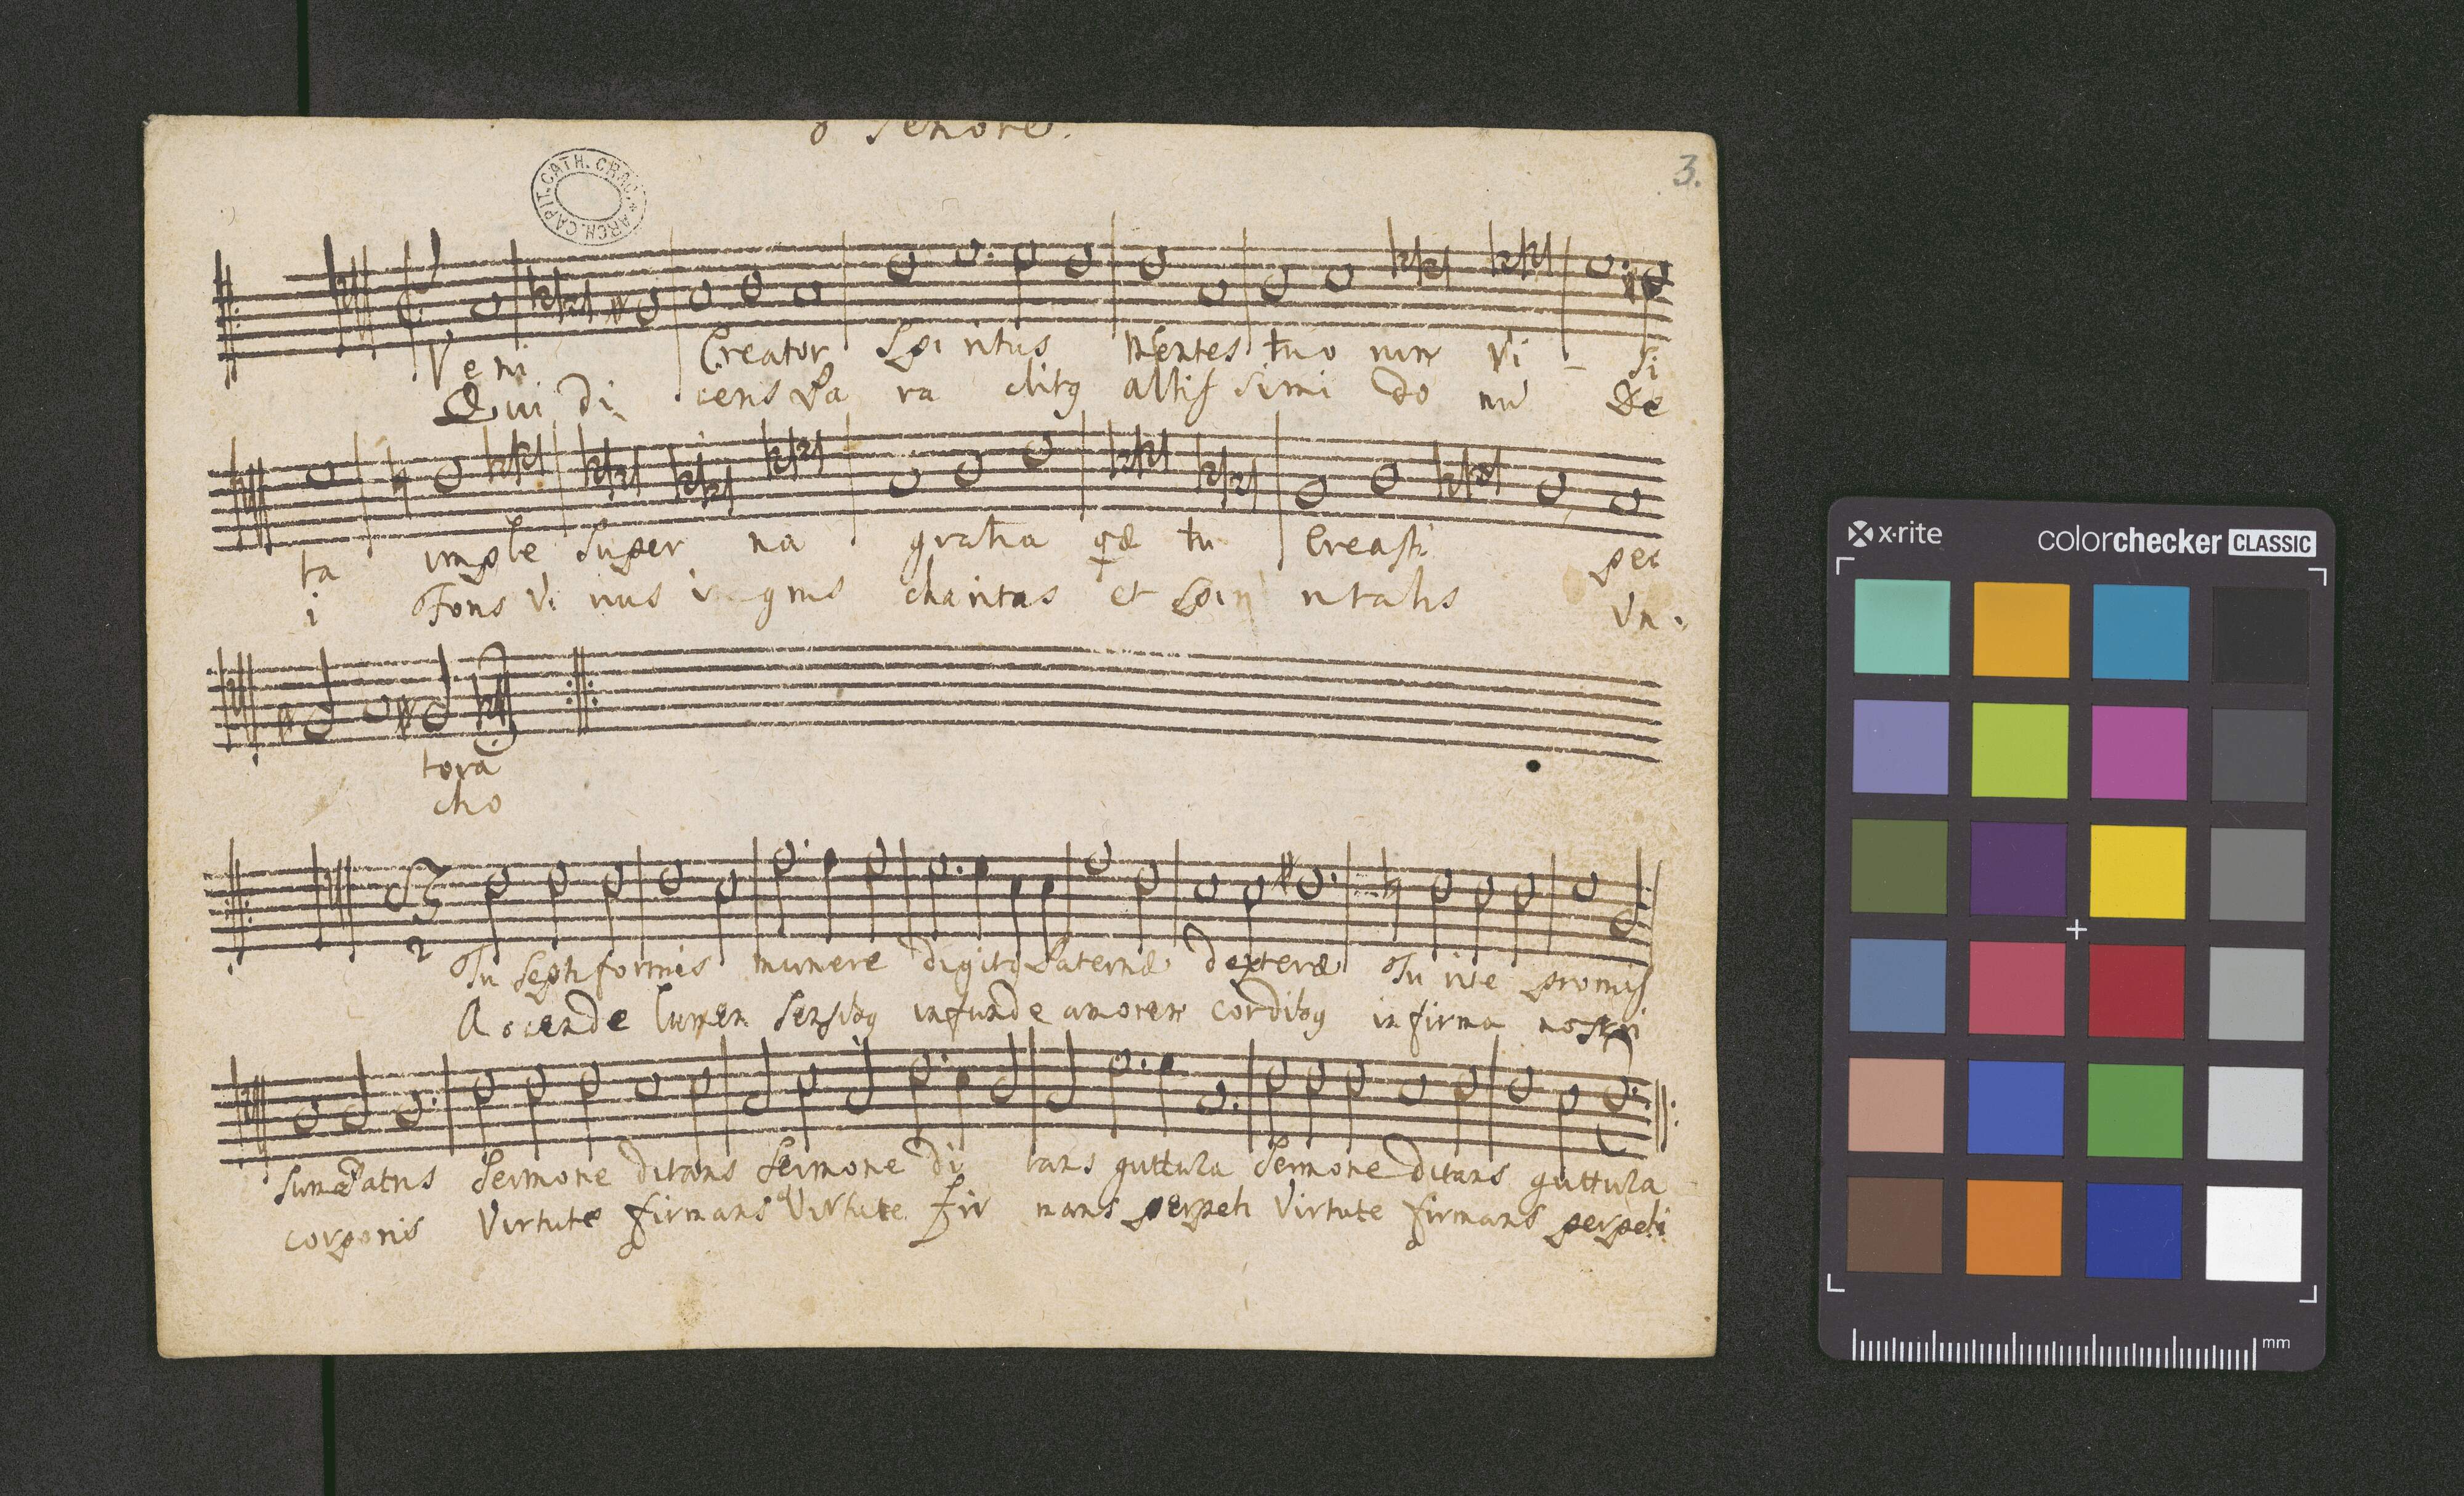 Tenore.
ARCH. CAPIT. CATH. CRAC.
3.
Veni Creator Spiritus Mentes tuo rum Vi - si
Qui di cens Pa ra clitꝫ altiss simi do nū De
ta imple super na gratia q̄æ tu Creasti pec
i Fons Vi uus i gnis charitas et Spi ritalis Vn.
tora
cho
2
Tu septiformis munere digitꝫ Paternæ dexteræ Tu rite promis
Accende lumen sensibꝫ infunde amorem cordibꝫ infirma nostri
sum Patris Sermone ditans Sermone di tans guttura Sermone ditans guttura
corporis Virtute firmans Virtute fir mans perpeti Virtute firmans perpeti
x·rite colorchecker CLASSIC
mm